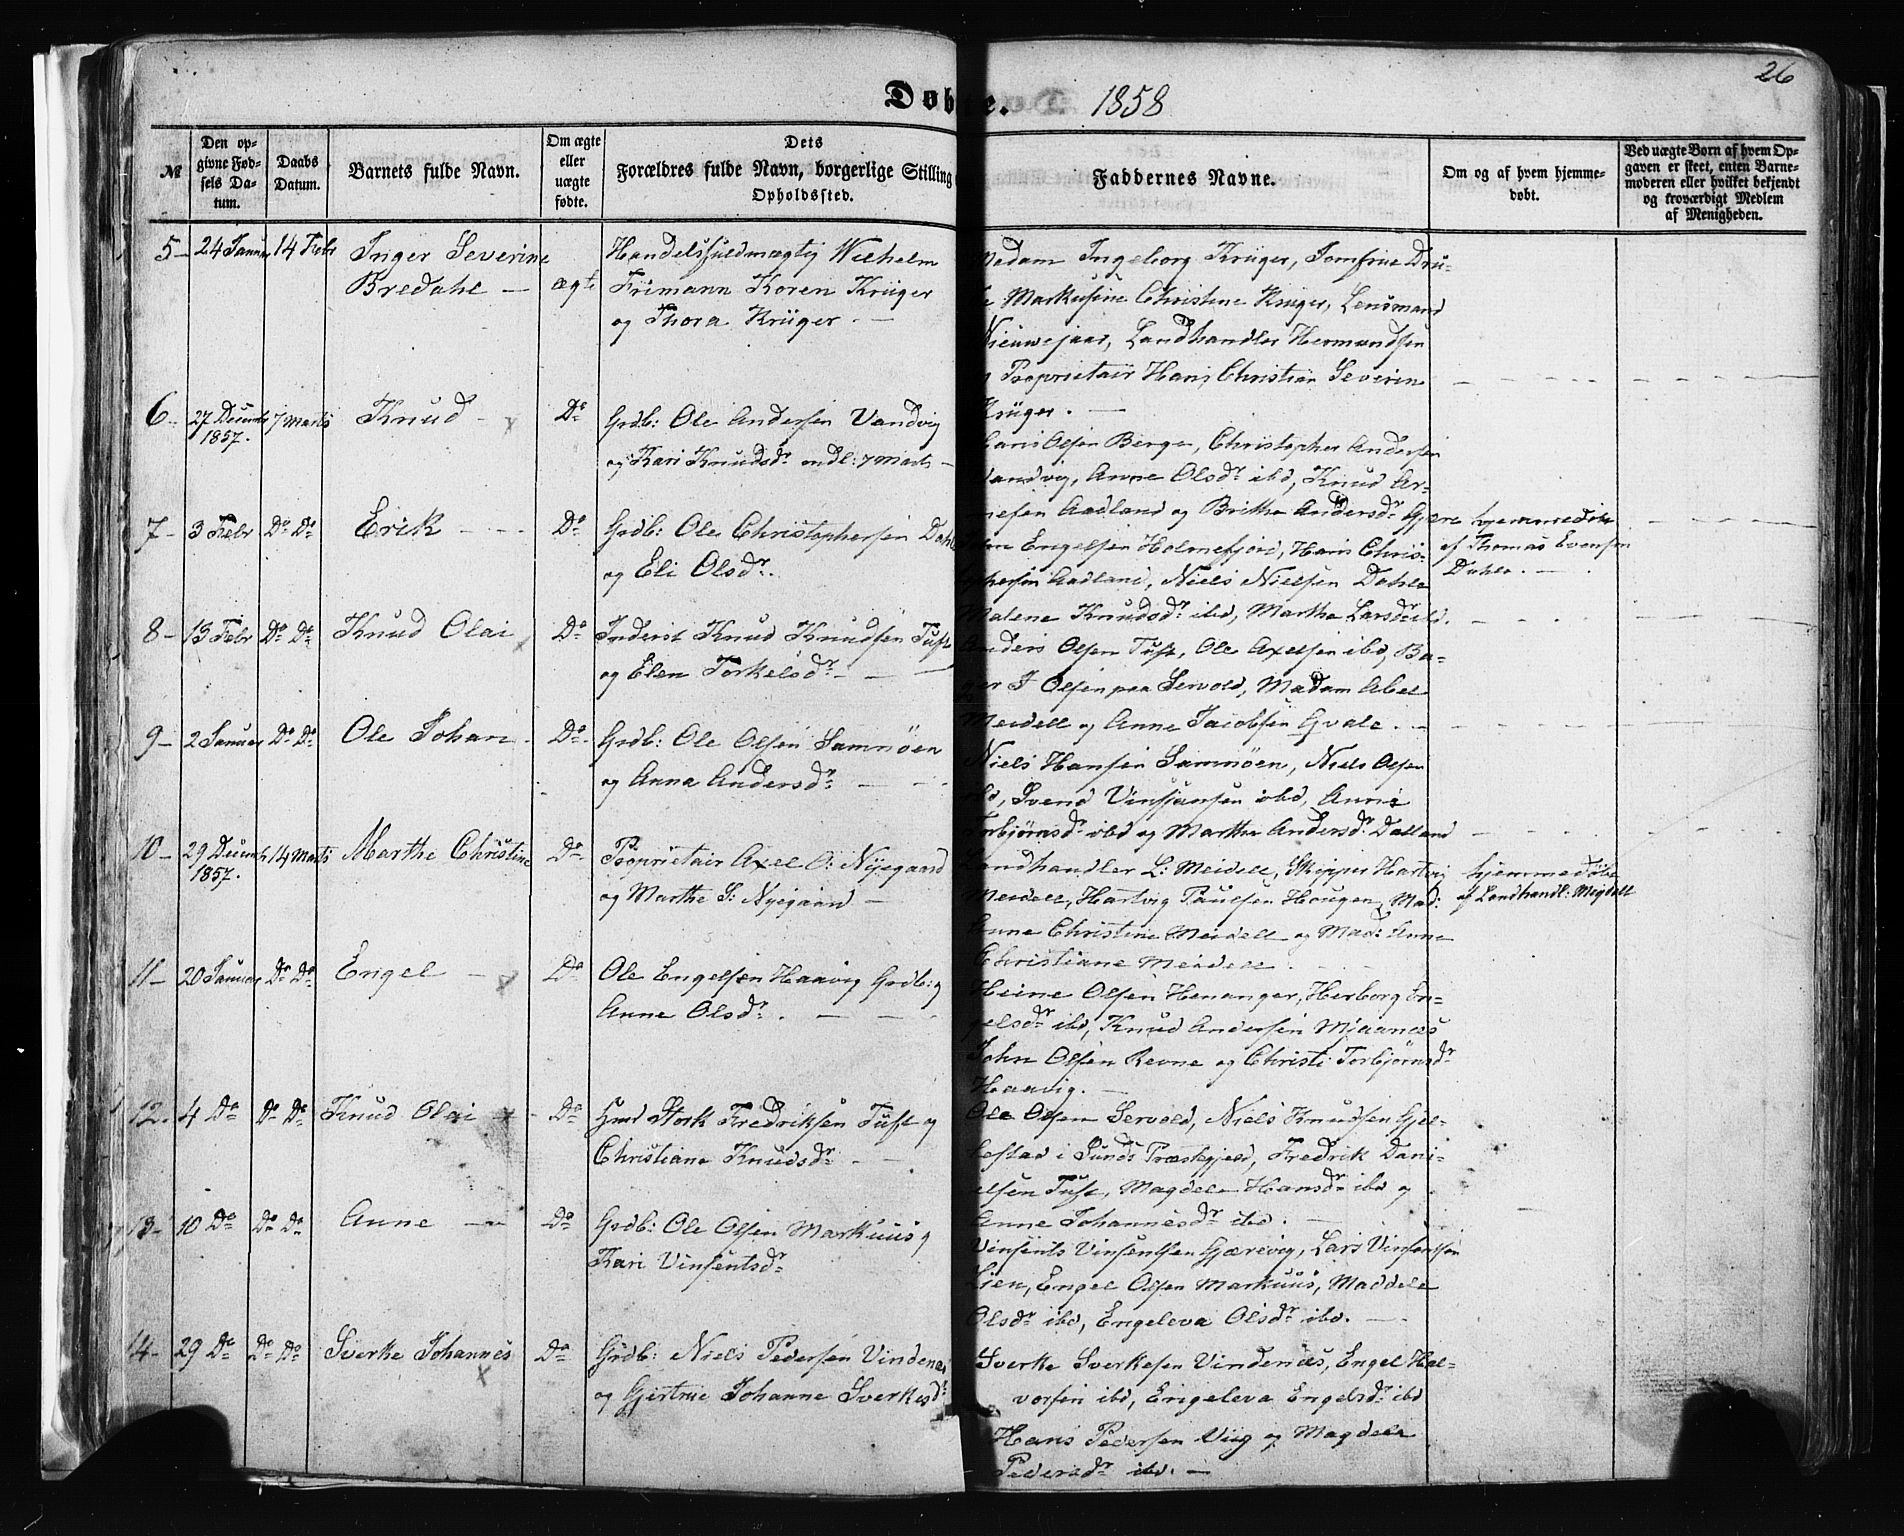 26
Døbte. 1858
№
Den opgivne Fødsels Datum.
Daabs Datum.
Barnets fulde Navn.
Om ægte eller uægte fødte.
Dets Forældres fulde Navn, borgerlige Stilling
Opholdssted.
Faddernes Navne.
Om og af hvem hjemmedøbt.
Ved uægte Børn af hvem Opgaven er skeet, enten Barnemoderen eller hvilket bekjendt og troværdigt Medlem af Menigheden.
5 24 Januar 14 Febr Inger Severine
Bredahl
ægte
Handelsfuldmægtig Wilhelm
Frimann Koren Krüger
og Thora Krüger.
Madam Ingeborg Krüger, Jomfrue Dru-
Markusine Christine Krüger, Lensmand
Nieuwejaar, Landhandler Hermundsen
Proprietair Hans Christian Severin
Krüger.
6 27 Decembr 1857. 7 Marts Knud
Do
Grdb: Ole Andersen Vandvig
og Kari Knudsdr. 7 Marts
Hans Olsen Berge, Christopher Andersen
Vandvig, Anne Olsdr ibd, Knud Ar-
nesen Aadland og Britha Andersdr Gjære
7 3 Febr Do Do Erik Do
Grdb: Ole Christophersen Dahle
og Eli Olsdr.
Engelsen Holmefjord, Hans Chris-
tophersen Aadland, Niels Nielsen Dahle
Malene Knudsdr ibd, Marthe Larsdr ibd.
hjemmedøbt
af Thomas Evensen
Dahle.
8 13 Febr Do Do Knud Olai Do
Inderst Knud Knudsen Tuft
og Elen Torkelsdr
Anders Olsen Tuft, Ole Axelsen ibd, Ba-
ger I Olsen paa Servold, Madam Abel
Meidell og Anne Jacobsen Qvale.
9 2 Januar Do Do Ole Johan Do
Grdb: Ole Olsen Samnøen
og Anna Andersdr
Niels Hansen Samnøen, Niels Olsen
ibd, Svend Vinsjansen ibd, Anne
Torbjørnsdr ibd og Marthe Andersdr Dalland
10 29 Decembr 1857. 14 Marts Marthe Christine Do
Proprietair Axel O: Nyegaard
og Marthe S: Nyegaard
Landhandler L: Meidell, Skipper Hartvig
Meidell, Hartvig Paulsen Hougen, Mad:
Anne Christine Meidell og Mad: Anne
Christiane Meidell.
hjemmedøbt
af Landhandl: Meidell
11 20 Januar Do Do Engel Do
Ole Engelsen Haavig Grdb: og
Anne Olsdr.
Heine Olsen Henanger, Herborg En-
gelsdr ibd, Knud Andersen Mjaanæs
John Olsen Revne og Christi Torbjørnsdr
Haavig.
12. 4 Do Do Do Knud Olai Do
Hmd Stork Fredriksen Tuft og
Christiane Knudsdr
Ole Olsen Servold, Niels Knudsen Gjel-
lestad i Sunds Præstegjeld, Fredrik Dani-
elsen Tuft, Magdele Hansdr ibd og
Anne Johannesdr ibd.
13 10 Do Do Do Anne Do
Grdb: Ole Olsen Markuus og
Kari Vinsentsdr
Vinsents Vinsentsen Gjærevig, Lars Vinsentsen
Lien, Engel Olsen Markuus, Maddele
Olsdr ibd, Engeleva Olsdr ibd.
14 29 Do Do Do Sverke Johannes Do
Grdb: Niels Pedersen Vindenæs
og Gjertrue Johanne Sverkesdr
Sverke Sverkesen Vindenæs, Engel Hal-
vorsen ibd, Engeleva Engelsdr ibd
Hans Pedersen Viig og Magdele
Pedersdr ibd.